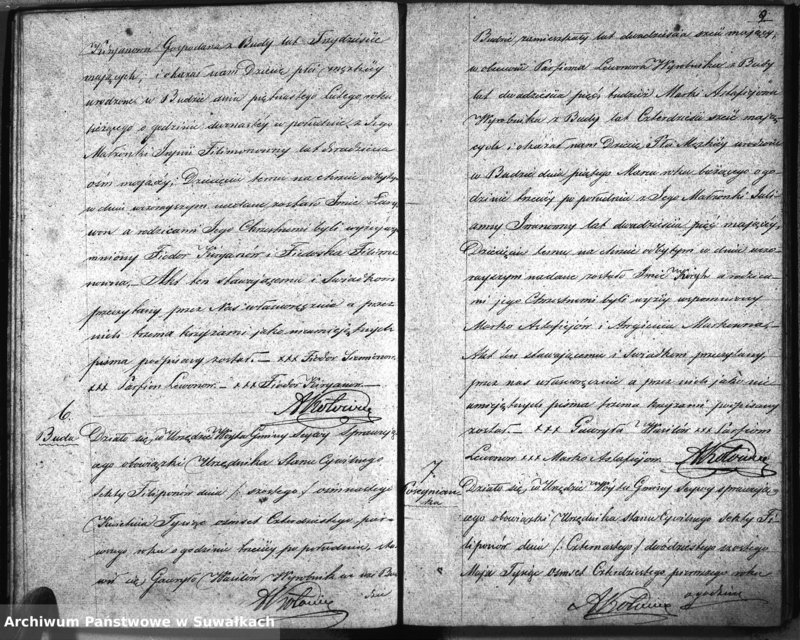 Kiryanowa Gospodarza z Budy lat Trzydzieście
mających, i okazał nam Dziecię płci męzkiéy
urodzone w Budzie dnia piętnastego Lutego roku
bieżącego o godzinie dwunastéy w południe z Jego
Małżonki Filimonowny lat dwadzieścia
ośm mającéy; Dziecięciu temu na chrzcie odbytym
w dniu wczorayszym nadane zostało Imie Ław
ron a rodzicami Jego Chrzestnemi byli wyżéy wspo
mniony Fiedor Kiryanów i Fiedośka Filimo
nowna. — Akt ten stawającemu i Świadkom
przeczytany przez Nas własnoręcznie a przez
nich trzema krzyżami jako nieumiejętnych
pisma podpisany został. — xxx Fiedor Siemionow
xxx Parfion Lewonow. — xxx Fiedor Kiryanow. —
6.
Buda
Działo się, w Urzędzie Wóyta Gminy sprawują
cego obowiązki Urzędnika Stanu Cywilnego
Sekty Filiponów dnia /: szóstego :/ ośmnastego
Kwietnia Tysiąc ośmset Czterdziestego pier
wszego roku o godzinie trzeciéy po południu, sta
wił się Gawryło Wariłów Wyrobnik w wsi Bu
dzie
9
Budzie zamieszkały lat dwadzieścia sześć mający,
w obecności Parfiona Lewonowa Wyrobnika z Budy
lat dwadzieścia pięć tudzież Marki Astafijowa
Wyrobnika z Budy lat Czterdzieści sześć mają
cych i okazał nam Dziecię Płci Męzkiéy urodzone
w Budzie dnia piątego Marca roku bieżącego o go
dzinie trzeciéy po południu z Jego Małżonki Juli
anny Iwanowny lat dwadzieścia pięć mającéy,
Dziecięciu temu na chrzcie odbytym w dniu wczo
rayszym nadane zostało Imie a rodzica
mi jego Chrzestnemi byli wyżéy wspomniony
Marko Astafijów i Markowna. —
Akt ten stawającemu i Świadkom przeczytany,
przez nas własnoręcznie a przez nich jako nie
umiejętnych pisma trzema krzyżami podpisany
został. — xxx Gawryło Wariłów xxx Parfion
Lewonow xxx Marko Astafijow.
7.
Działo się, w Urzędzie Wóyta Gminy sprawują
cego obowiązki Urzędnika Stanu Cywilnego Sekty Fi
liponów dnia /: Czternastego :/ dwódziestego szóstego
Maja Tysiąc ośmset Czterdziestego pierwszego roku
o godzinie
Archiwum Państwowe w Suwałkach